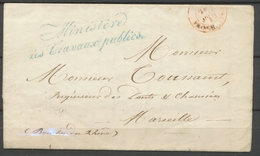 Ministère
des Travaux publics.
Monsieur
Monsieur Toussaint,
Ingénieur des Ponts et Chaussées
Marseille
(Bouches du Rhône)